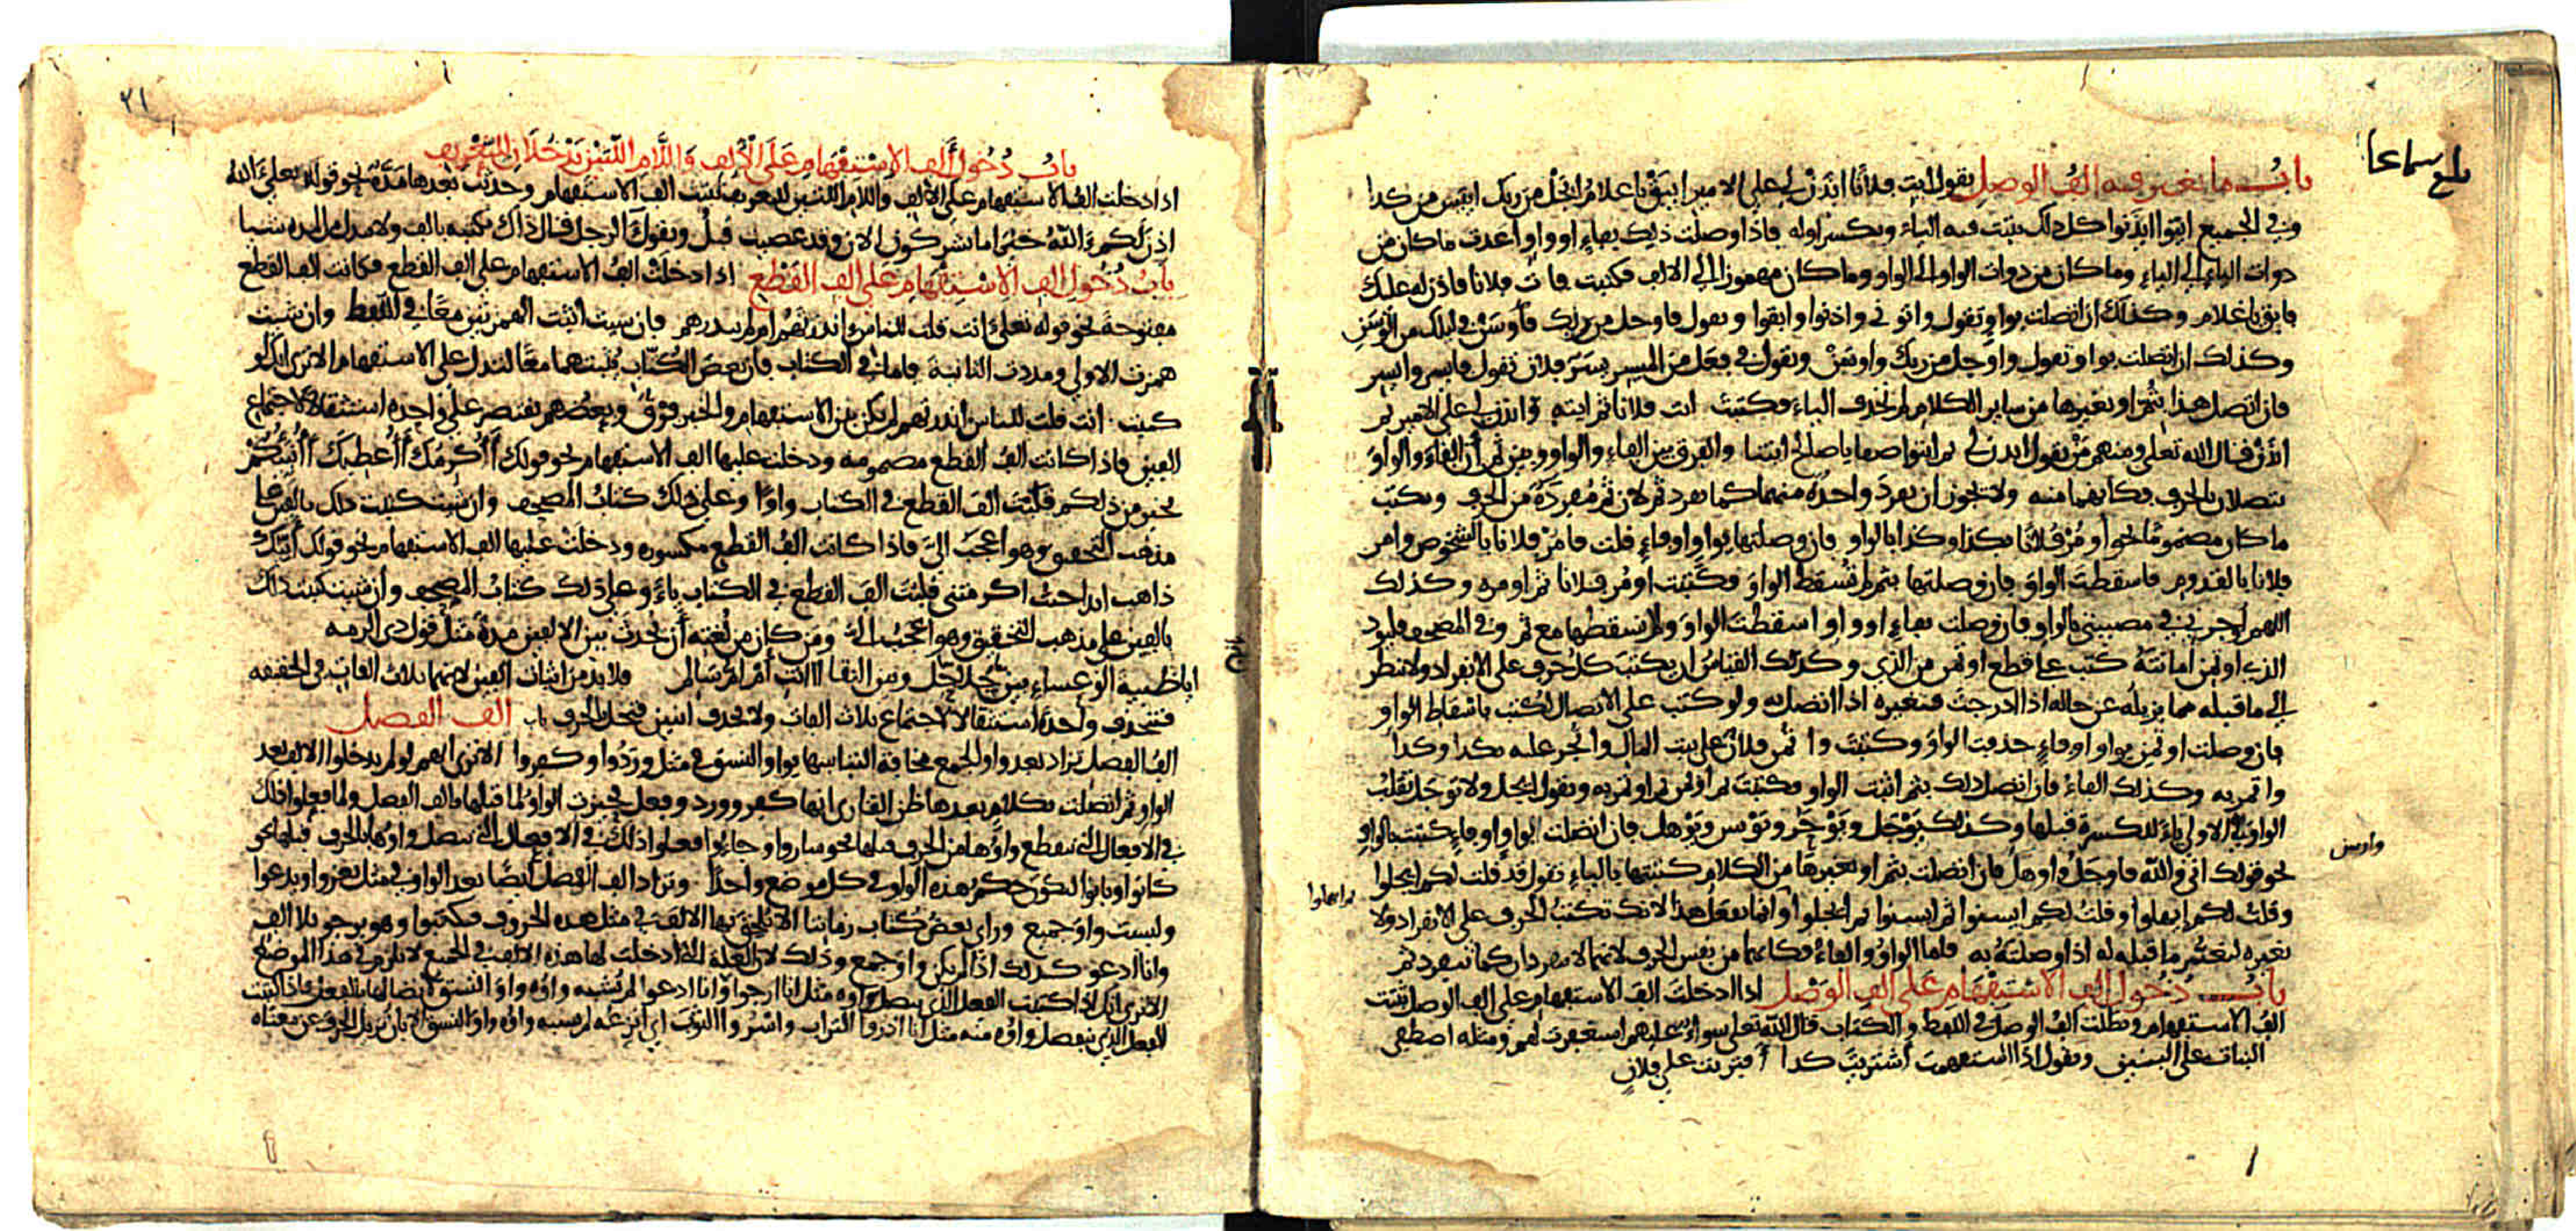 بلغ سماعا
باب ما تغير فيه الف الوصل تقول ايت فلانا ايذن لي على الامير ايبق يا غلام ايجل من ربك ايتس من كذا
وفي الجميع ايتوا ايذنوا كل ذلك تثبت فيه الياء وبكسر اوله فاذا وصلت ذلك بفاء او واو اعدت ما كان من
ذوات الياء الى الياء وما كان من ذوات الواو الى الواو وما كان مهموزا الى الالف فكتبت فات فلانا فاذن له عليك
فابق يا غلام وكذلك ان اتصلت بواو تقول واتوني واذنوا وابقوا وتقول فاوجل من ربك فاوسن في ليلك من الوسن
وكذلك ان اتصلت بواو تقول واوجل من ربك واوسن وتقول في فعل من الميسر يسر فلان تقول فايسر وايسر
فان اتصل هذا بثم او بغيرها من ساير الكلام لم تحذف الياء فكتبت ايت فلانا ثم ايته وائذن لي على الامير ثم
ائذن قال الله تعلى ومنهم من يقول ايذن لي ثم ايتوا صفا يا صلح ايتنا والفرق بين الفاء والواو وبين ثم ان الفاء والواو
تتصلان بالحرف فكانهما منه ولا يجوز ان تفرد واحدة منهما كما تفرد ثم لان ثم مفردة من الحرف وتكتب
ما كان مضموما نحو اومر فلانا بكذا وكذا بالواو فان وصلتها بواو او فاء قلت فامر فلانا بالشخوص وامر
فلانا بالقدوم فاسقطت الواو فان وصلتها بثم لم تسقط الواو فكتبت اومر فلانا ثم اومره وكذلك
اللهم اوجرني في مصيبتي بالواو فان وصلت بفاء او واو اسقطت الواو ولا تسقطها مع ثم وفي المصحف فليود
الذي اوتمن امانته كتب على قطع اوتمن من الذي وكذلك القياس ان يكتب كل حرف على الانفراد ولا تنظر
الى ما قبله مما يزيله عن حاله اذا ادرجت فتغيره اذا اتصل به ولو كتب على الاتصال لكتب باسقاط الواو
فان وصلت اوتمن بواو او فاء حذفت الواو وكتبت واتمن فلان على بيت المال واتجر عليه بكذا وكذا
واتمر به وكذلك الفاء فان اتصل ذلك بثم اثبت الواو فكتبت ثم اوتمن ثم اوتمر به وتقول ايجل ولا توجل تقلب
الواو في الاولى ياء للكسرة قبلها وكذلك توجل وتوحر وتوسن وتوهل فان اتصلت بواو او فاء كتبت بالواو
نحو قولك اتق والله فاوجل واوهل فان اتصلت بثم او بغيرها من الكلام كتبتها بالياء تقول قد قلت لكم ايجلوا
وقلت لكم ايهلوا وقلت لكم ايسنوا ثم ايسنوا ثم ايجلوا وانما تفعل هذا لانك تكتب الحرف على الانفراد ولا
تغيره لتغير ما قبله له اذا وصلته به فاما الواو والفاء فكانهما من نفس الحرف لانهما لا ينفردان كما تنفرد ثم
باب دخول الف الاستفهام على الف الوصل اذا ادخلت الف الاستفهام على الف الوصل ثبتت
الف الاستفهام وبطلت الف الوصل في اللفظ والكتاب قال الله تعلى سواء عليهم استغفرت لهم ومثله اصطفى
البنات على البنين وتقول اذا استفهمت اشتريت كذا افتريت على فلان
واوسن
ثم ايهلوا
٢١
باب دخول الف الاستفهام على الالف واللام اللتين تدخلان للتعريف
اذا دخلت الف الاستفهام على الالف واللام اللتين للتعريف ثبتت الف الاستفهام وحدثت بعدها مدة نحو قوله تعلى الله
اذن لكم الله خير اما تشركون الان وقد عصيت قبل وتقول الرجل قال ذاك تكتبه بالف ولا تبدل من المدة شيا
باب دخول الف الاستفهام على الف القطع اذا دخلت الف الاستفهام على الف القطع وكانت الف القطع
مفتوحة نحو قوله تعلى اانت قلت للناس اانذرتهم ام لم تنذرهم فان شيت اثبت الهمزتين معا في اللفظ وان شيت
همزت الاولى ومددت الثانية فاما في الكتاب فان بعض الكتاب يثبتهما معا لتدل على الاستفهام الا ترى انك لو
كتبت انت قلت للناس انذرتهم لم يكن بين الاستفهام والخبر فرق وبعضهم يقتصر على واحدة استثقالا لاجتماع
الفين فاذا كانت الف القطع مضمومة ودخلت عليها الف الاستفهام نحو قولك أأكرمك أأعطيك أأنبئكم
بخير من ذلكم قلبت الف القطع في الكتاب واوا وعلى ذلك كتاب المصحف وان شيت كتبت ذلك بالفين على
مذهب التحقيق وهو اعجب الي فاذا كانت الف القطع مكسورة ودخلت عليها الف الاستفهام نحو قولك أئنك
ذاهب ايذا جيت اكرمتني قلبت الف القطع في الكتاب ياء وعلى ذلك كتاب المصحف وان شيت كتبت ذلك
بالفين على مذهب التحقيق وهو اعجب الي ومن كان من لغته ان يحدث بين الالفين مدة مثل قول ذي الرمة
ايا ظبية الوعساء بين جلاجل وبين النقا ااانت ام ام سالم فلا بد من اثبات الفين لانهما ثلاث الفات في الحقيقة
فتحذف واحدة استثقالا لاجتماع ثلاث الفات ولا تحذف اثنين فتخل بالحرف باب الف الفصل
الف الفصل تزاد بعد واو الجمع مخافة التباسها بواو النسق في مثل وردوا وكفروا الا ترى انهم لو لم يدخلوا الالف بعد
الواو ثم اتصلت بكلام بعدها ظن القارئ انها كفر وورد وفعل فحيزت الواو لما قبلها بالف الفصل ولما فعلوا ذلك
في الافعال التي تنقطع واوها من الحرف قبلها نحو ساروا وجاءوا فعلوا ذلك في الافعال التي تتصل واوها بالحرف قبلها نحو
كانوا وبانوا ليكون حكم هذه الواو في كل موضع واحدا وتزاد الف الفصل ايضا بعد الواو في مثل يغزوا ويدعوا
وليست واو جميع وراى بعض كتاب زماننا الا تلحق بها الالف في مثل هذه الحروف فكتبوا هو يرجو بلا الف
وانا ادعو كذلك اذ لم يكن واو جمع وذلك لان العلة التي ادخلت لها هذه الالف في الجميع لا تلزم في هذا الموضع
الا ترى انك اذا كتبت الفعل الذي تتصل واوه مثل انا ارجوا وانا ادعوا لم تشبه واوه واو النسق لاتصالها بالفعل فاذا كتبت
الفعل الذي تنفصل واوه منه مثل انا اذروا التراب واسروا الثوب اي انزعه لم تشبه واوه واو النسق الا بان تزيل الحرف عن معناه